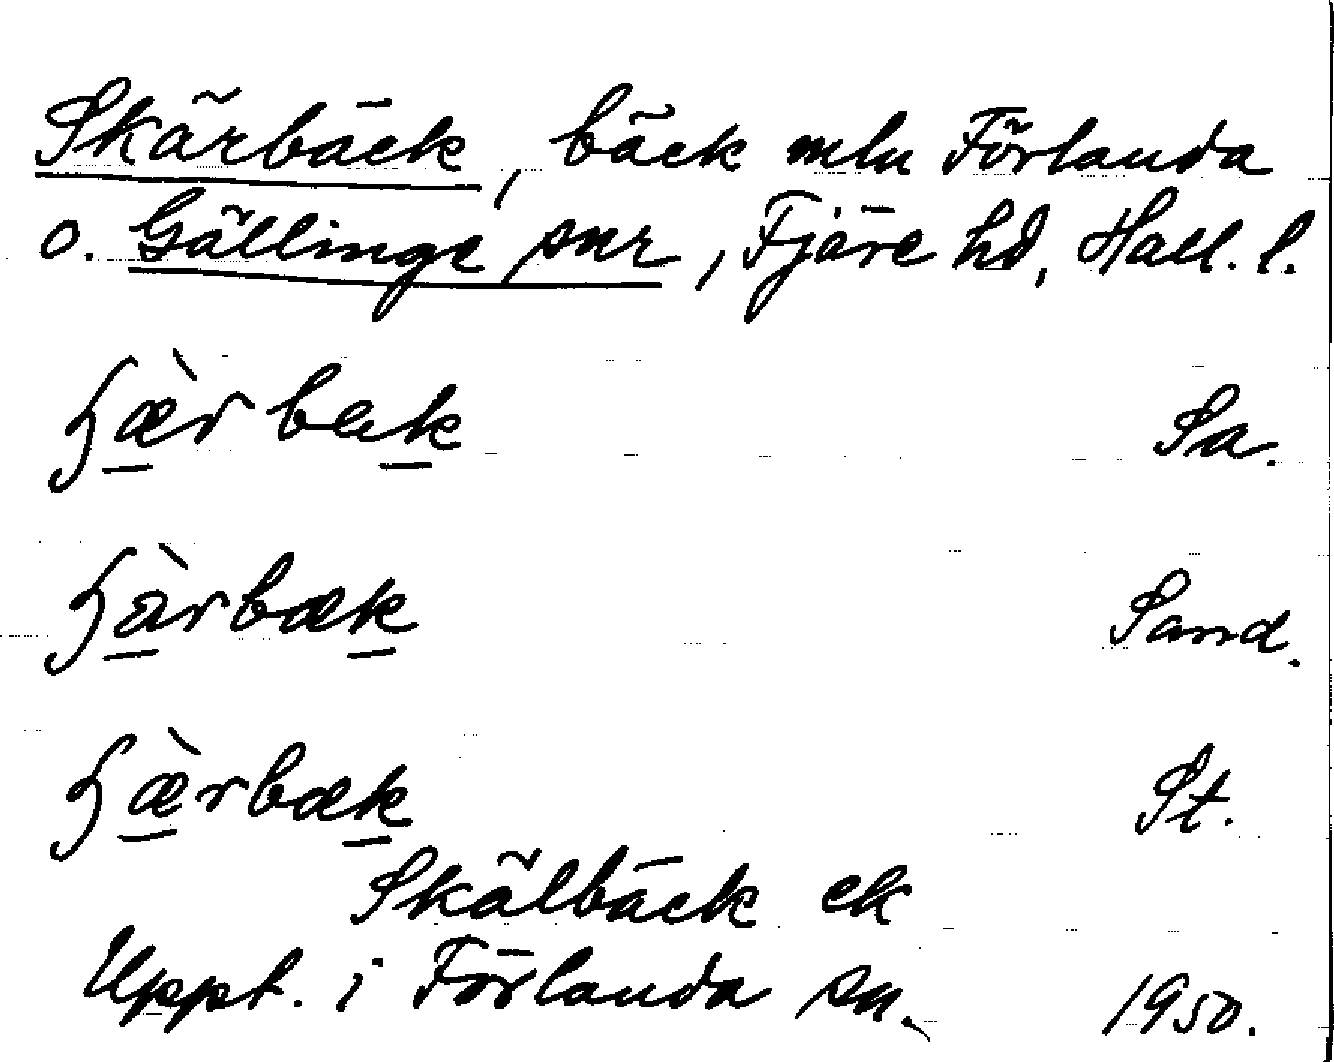 Skärbäck, bäck mln Förlanda
o. Gällinge snr, Fjäre hd, Hall. l.
ʃæ̀rbak Sa.
ʃàrbæk Sand.
ʃæ̀rbæk St.
Skälbäck ek
Uppt. i Förlanda sn. 1950.